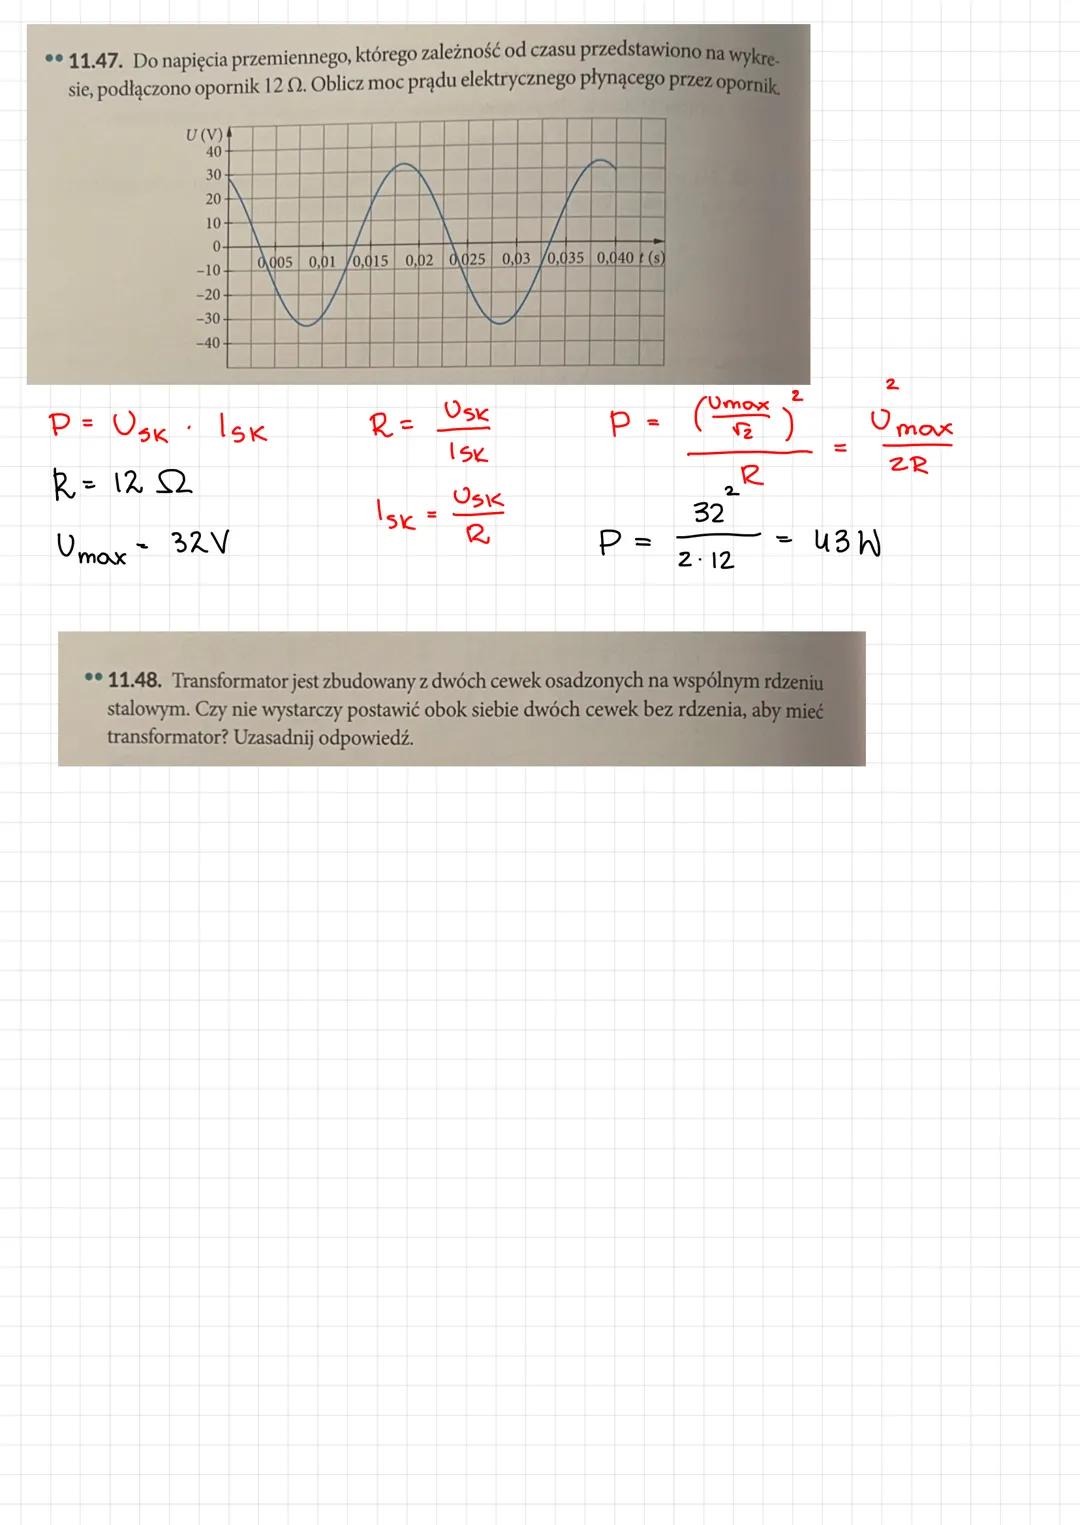 •• 11.47. Do napięcia przemiennego, którego zależność od czasu przedstawiono na wykre-
sie, podłączono opornik 12 Ω. Oblicz moc prądu elektrycznego płynącego przez opornik.
U (V)
40
30
20
10
0
0,005 0,01 0,015 0,02 0,025 0,03 0,035 0,040 t (s)
−10
−20
−30
−40
P = Usk · Isk
R = 12 Ω
Umax = 32V
R = Usk / Isk
Isk = Usk / R
P = (Umax / √2)² / R = U²max / 2R
P = 32² / 2·12 = 43W
•• 11.48. Transformator jest zbudowany z dwóch cewek osadzonych na wspólnym rdzeniu
stalowym. Czy nie wystarczy postawić obok siebie dwóch cewek bez rdzenia, aby mieć
transformator? Uzasadnij odpowiedź.